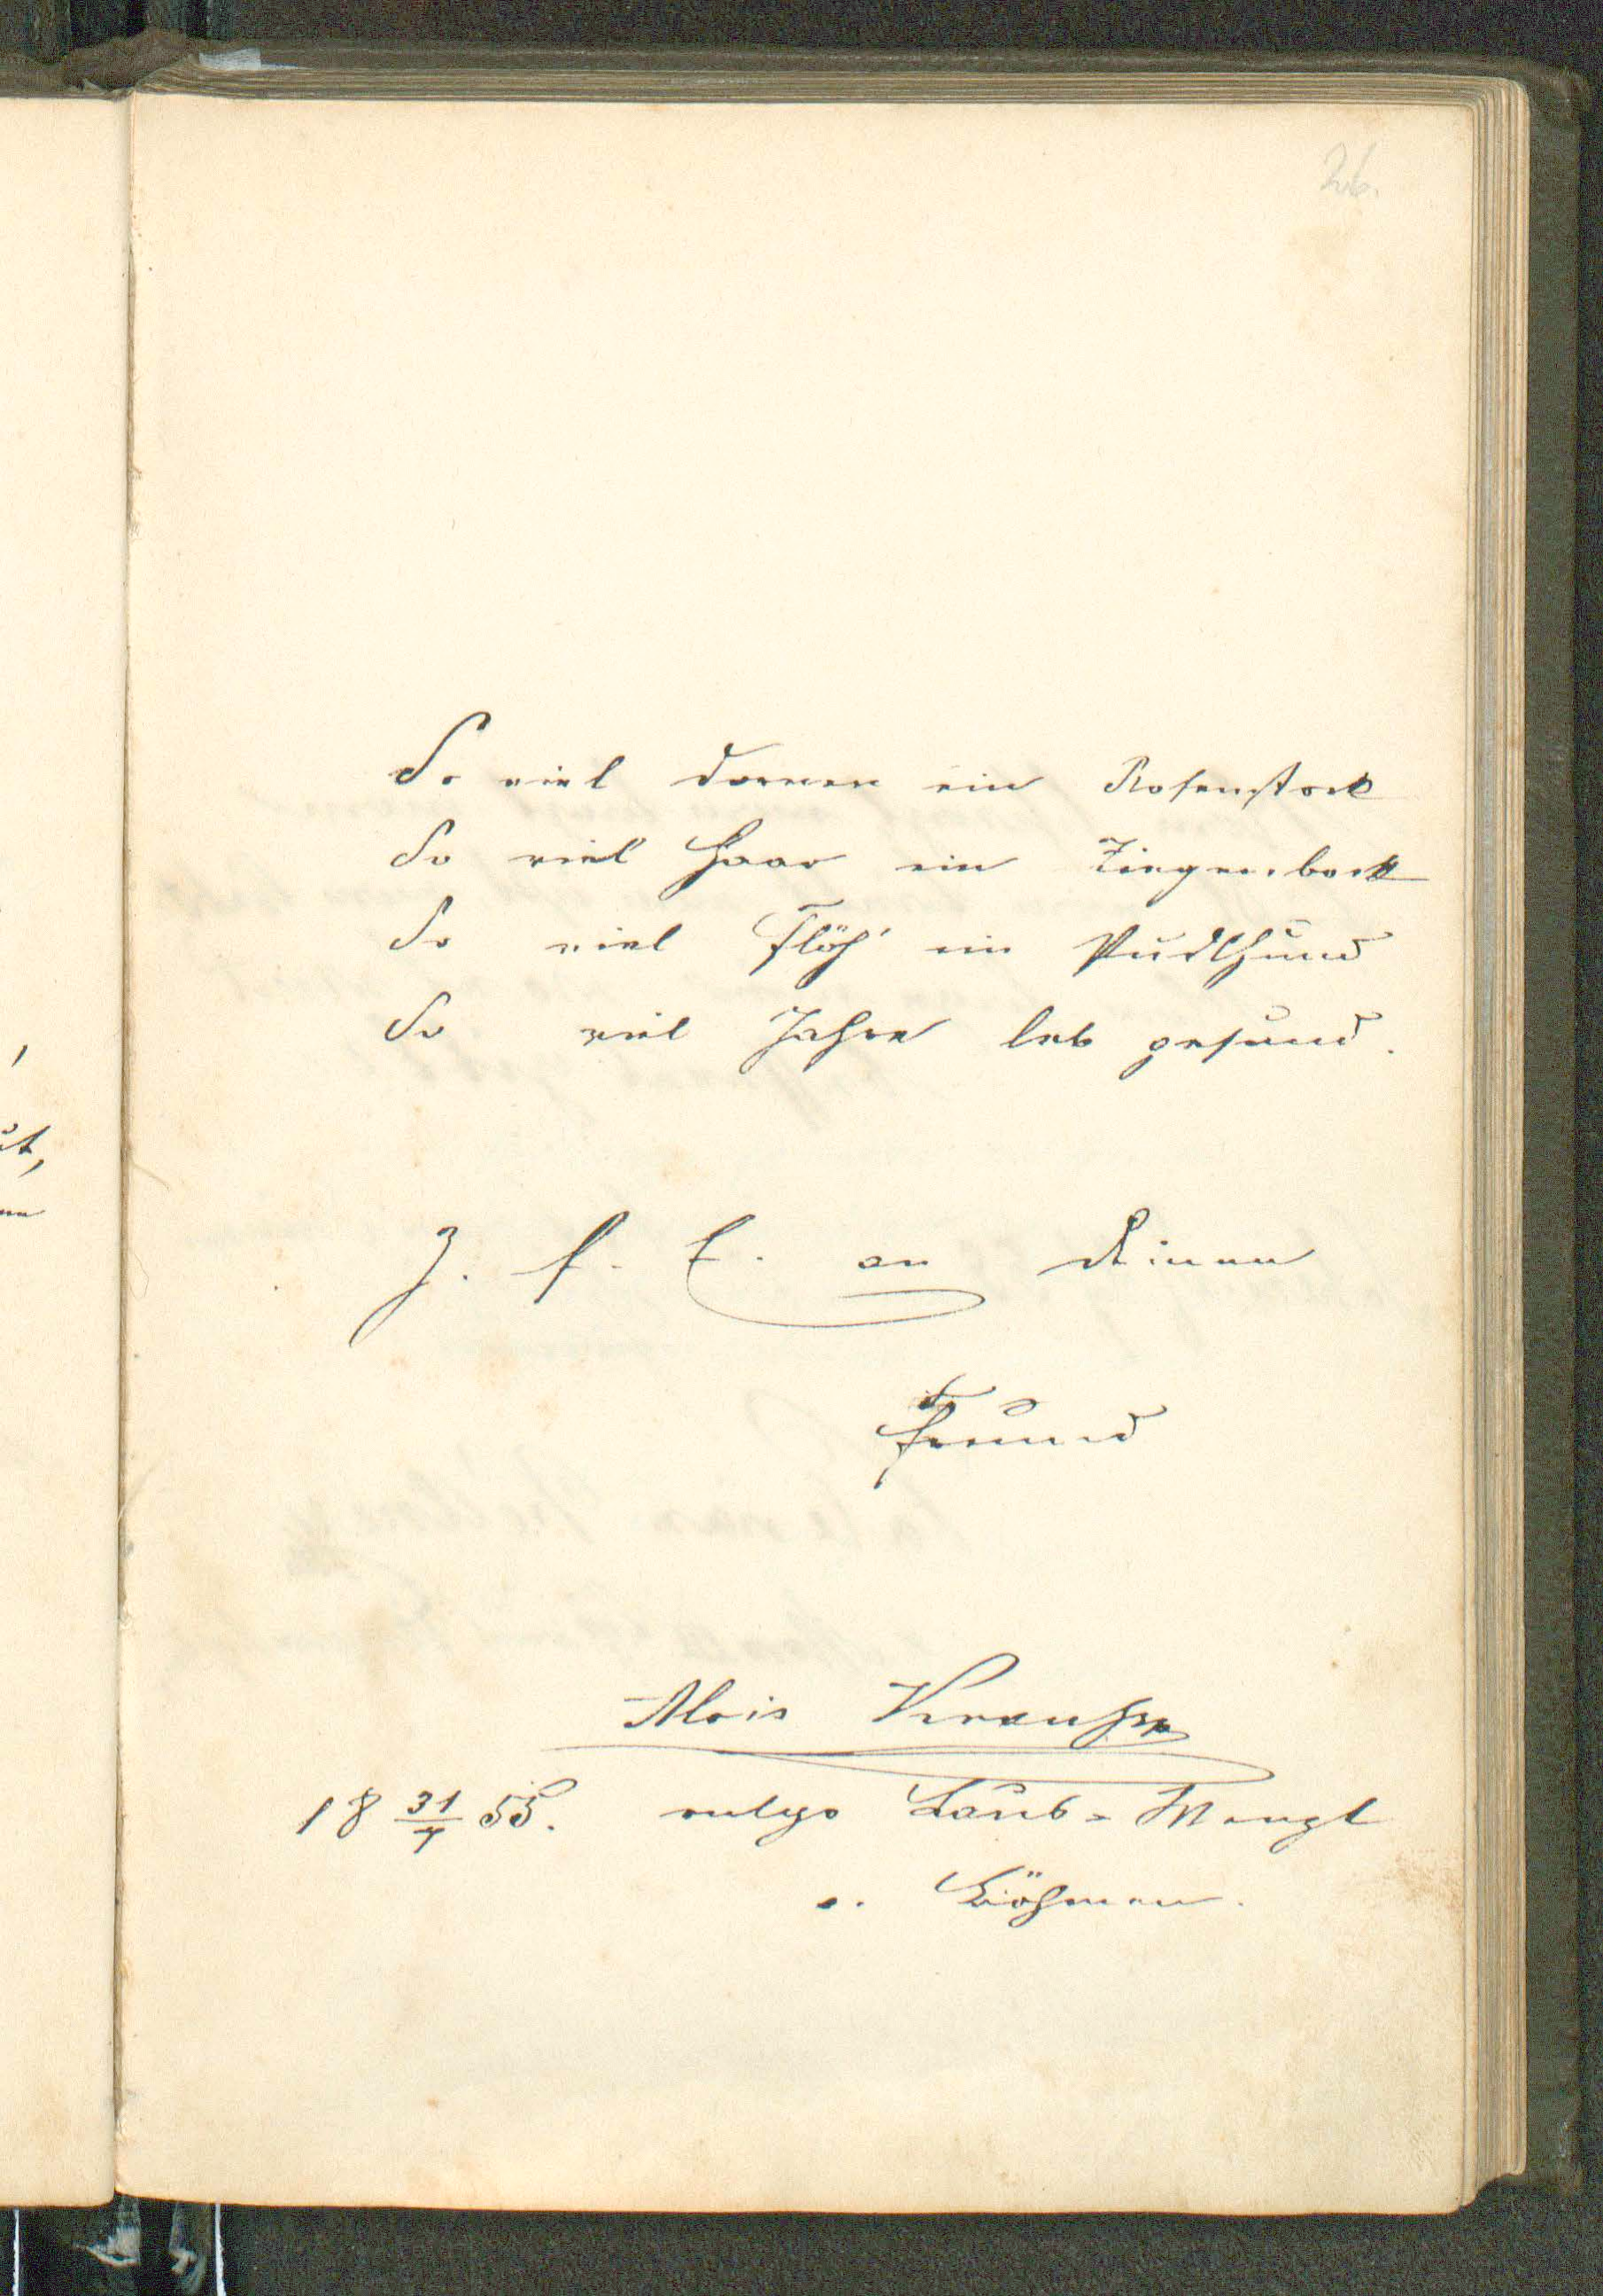 26.
So viel Dornen ein Rosenstock
So viel Haar ein Ziegenbock
So viel Flöh' ein Pudlhund
So viel Jahre leb gesund.
Z. f. E. an Deinen
Freund
Alois Krausse
18 31/7 55. vulgo Laub-Wenzl
a. Böhmen.